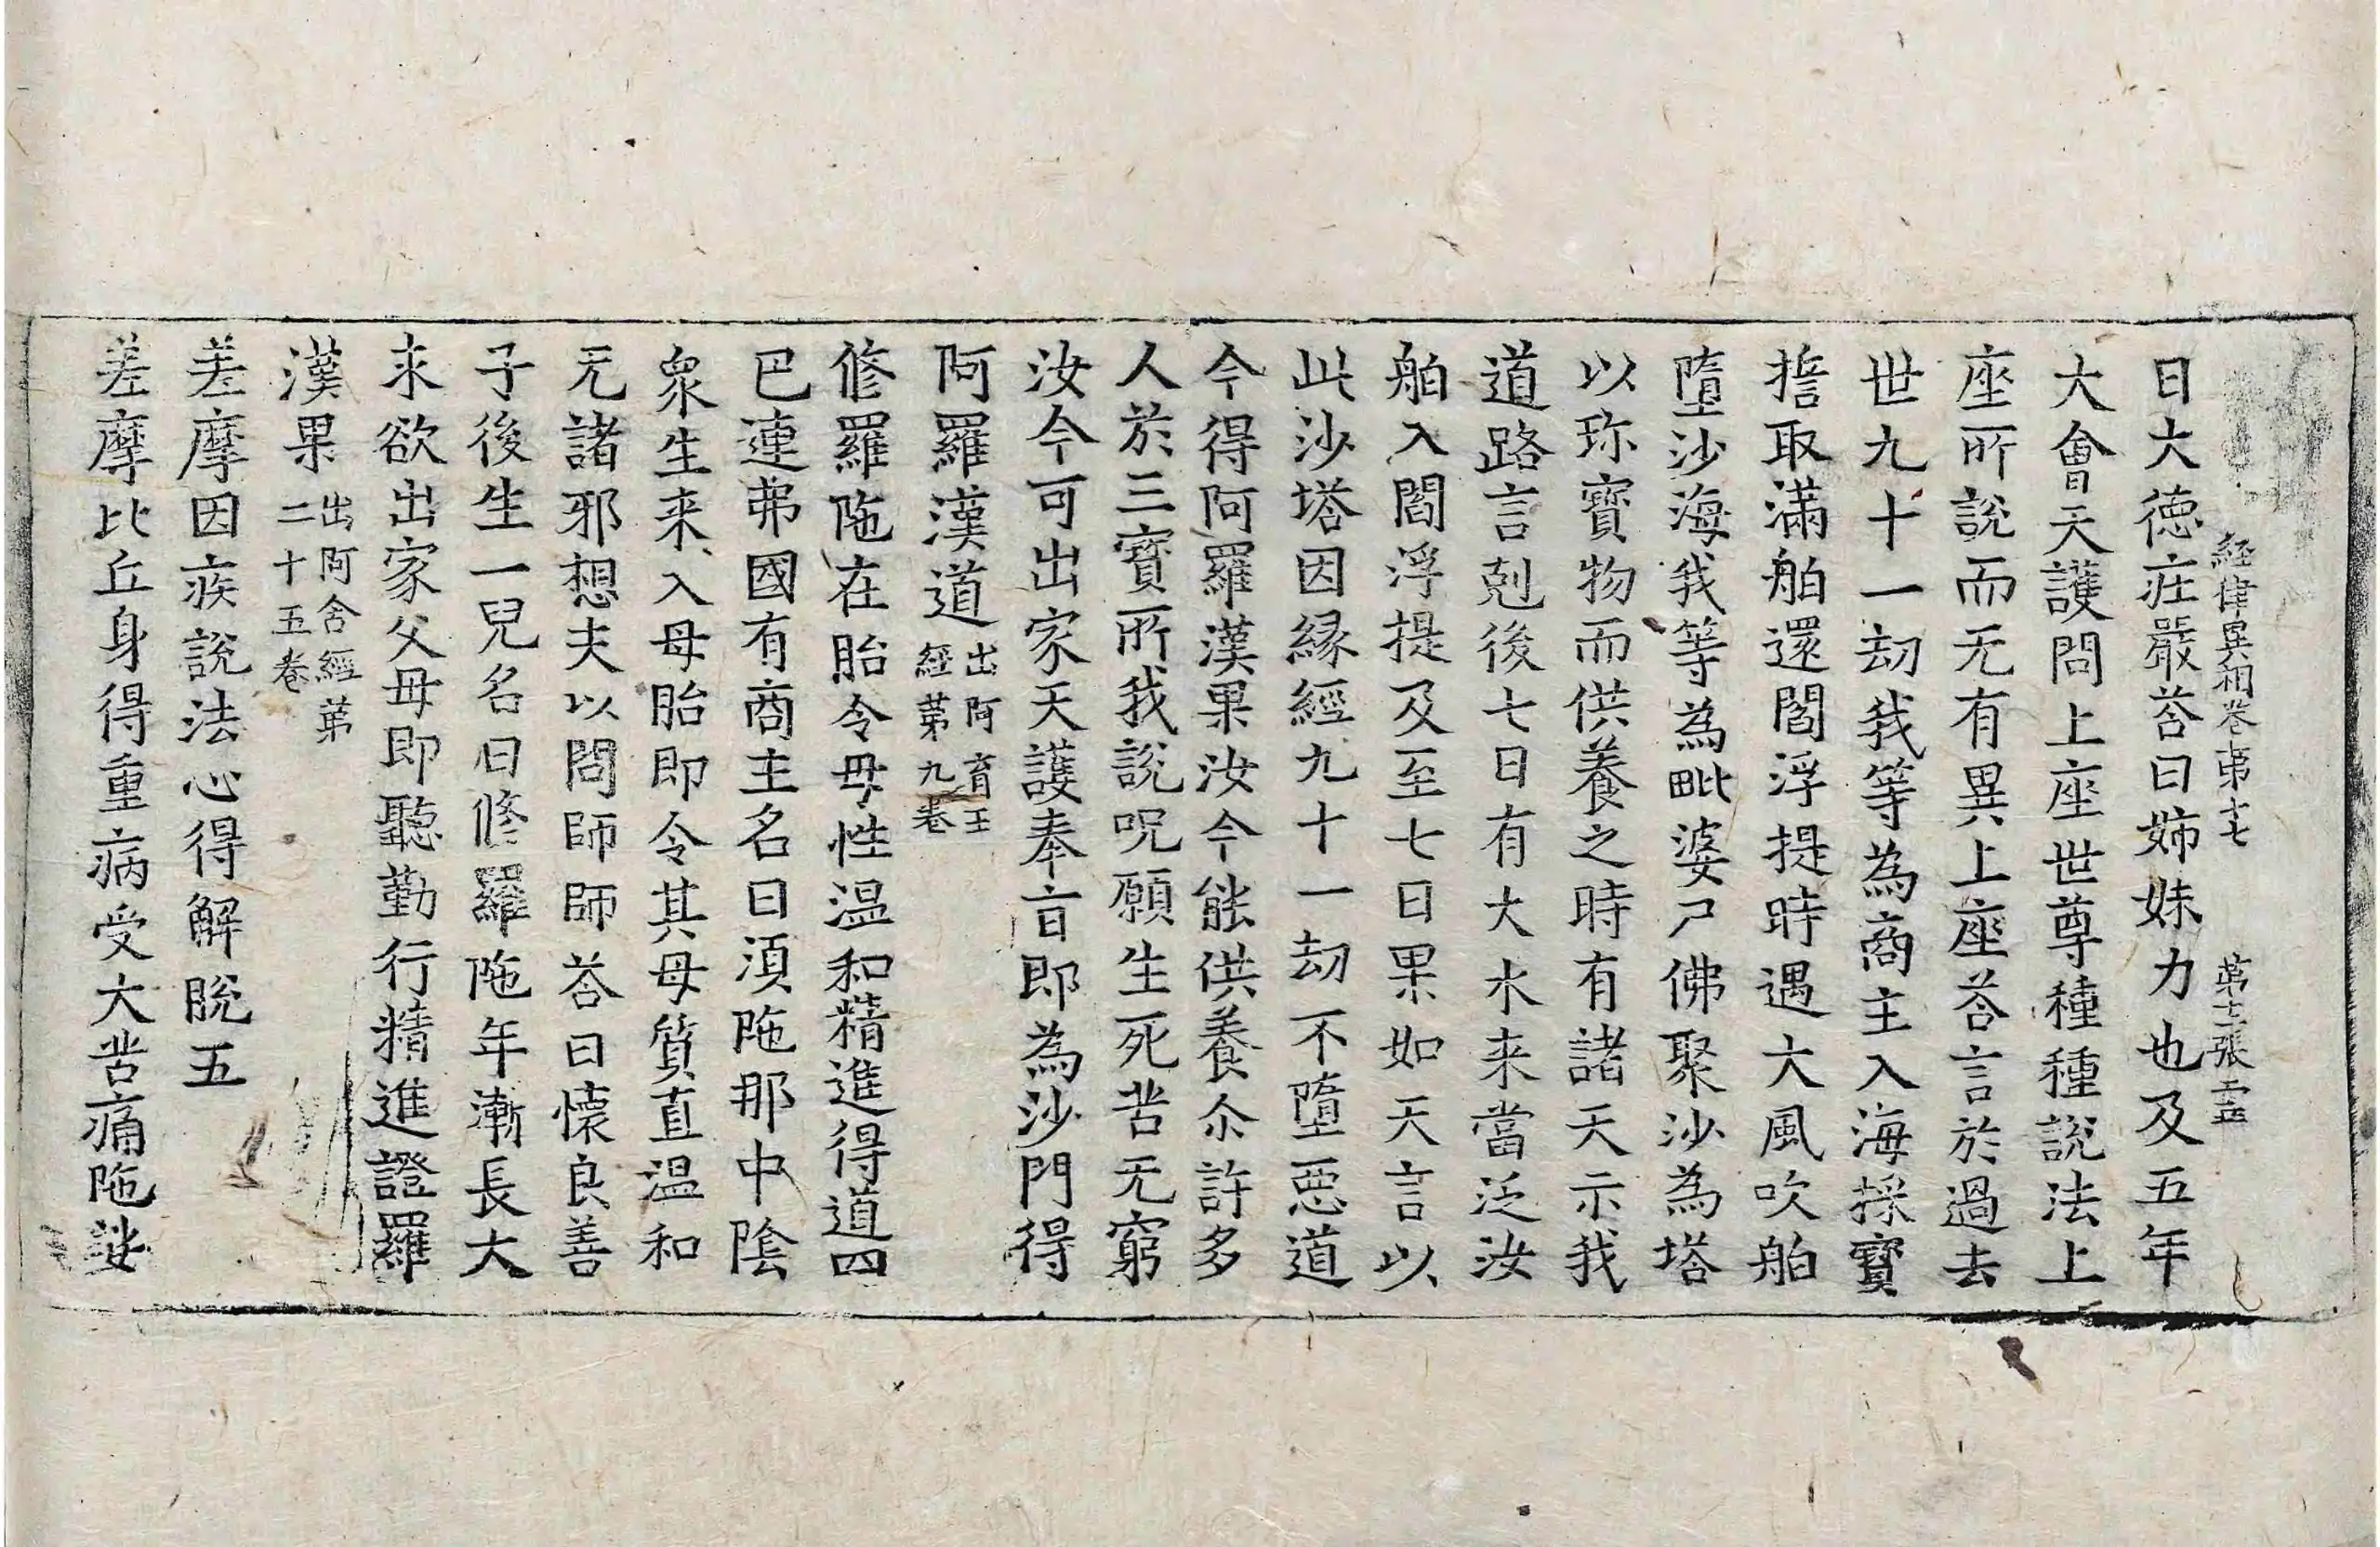 経律異相卷苐十七　苐十二張　靈
日大徳庄嚴荅曰姉妹力也及五年
大會天護問上座世尊種種說法上
座所說而无有異上座荅言於過去
世九十一劫我等為商主入海採寶
擔取滿舶還閻浮提時遇大風吹舶
墮沙海我等為毗婆尸佛聚沙為塔
以珎寶物而供養之時有諸天示我
道路言剋後七日有大水来當泛汝
舶入閻浮提及至七日果如天言以
此沙塔因縁經九十一劫不墮惡道
今得阿羅漢果汝今能供養尒許多
人於三寶所我說呪願生死苦无窮
汝今可出家天護奉旨即為沙門得
阿羅漢道出阿育王經苐九卷
修羅陁在胎令母性溫和精進得道四
巴連弗國有商主名曰湏陁那中陰
衆生来入母胎即令其母質直溫和
无諸邪想夫以問師師荅曰懷良善
子後生一兒名曰修羅陁年漸長大
求欲出家父母即聽勤行精進證羅
漢果出阿含經苐二十五卷
差摩因疾說法心得解脫五
差摩比丘身得重病受大苦痛陁娑